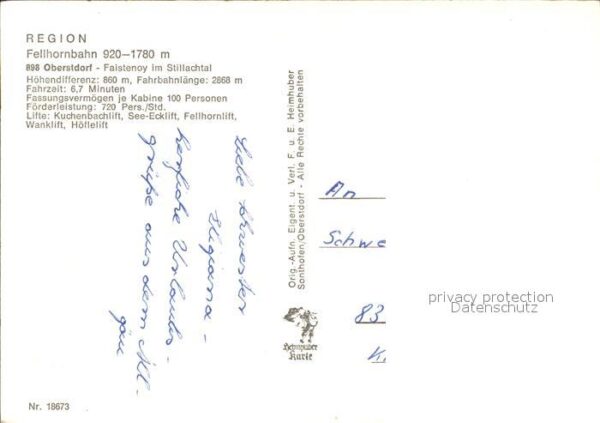 REGION
Fellhornbahn 920—1780 m
898 Oberstdorf - Faistenoy im Stillachtal
Höhendifferenz: 860 m, Fahrbahnlänge: 2868 m
Fahrzeit: 6,7 Minuten
Fassungsvermögen je Kabine 100 Personen
Förderleistung: 720 Pers./Std.
Lifte: Kuchenbachlift, See-Ecklift, Fellhornlift,
Wanklift, Höflelift
Liebe Schwester
herzliche Urlaubs-
grüße aus dem All-
gäu
Orig.-Aufn. Eigent. u. Verl. F. u. E. Heimhuber
Sonthofen/Oberstdorf - Alle Rechte vorbehalten
Heimhuber
Karte
An
Schwe
83
privacy protection
Datenschutz
Nr. 18673